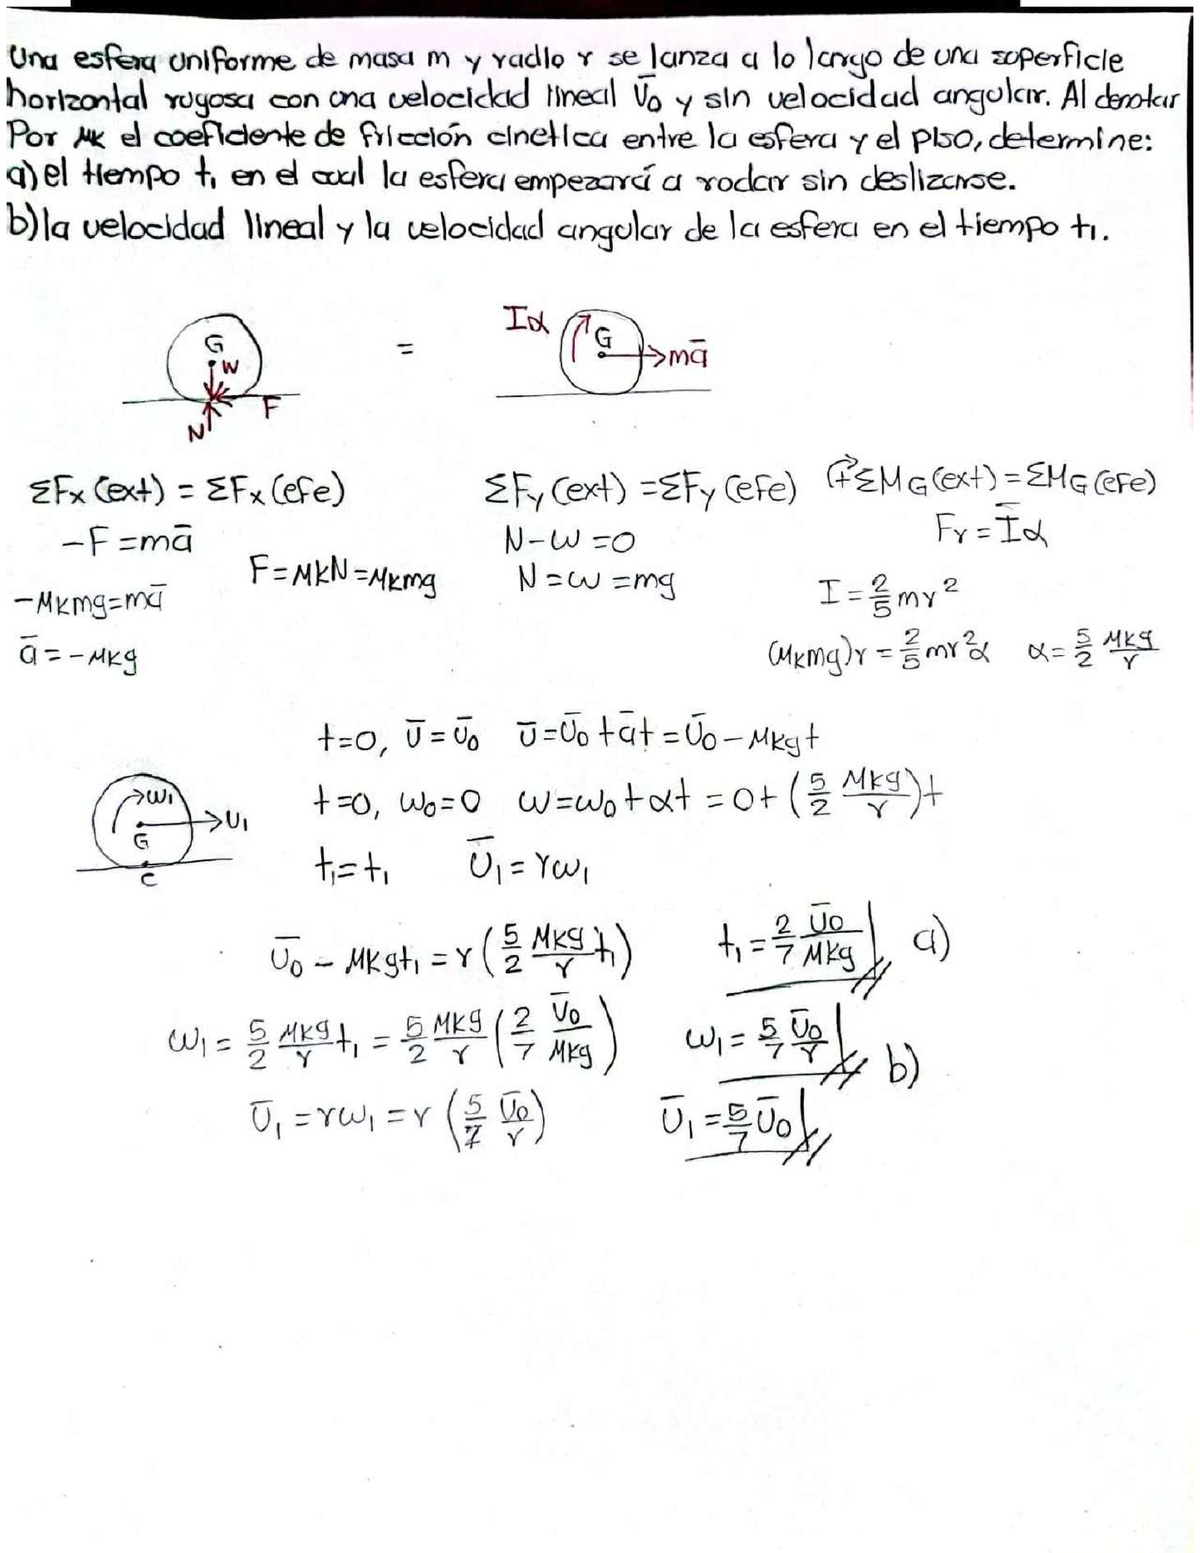 Una esfera uniforme de masa m y radio r se lanza a lo largo de una superficie
horizontal rugosa con una velocidad lineal v̄₀ y sin velocidad angular. Al denotar
Por μk el coeficiente de fricción cinetica entre la esfera y el piso, determine:
a) el tiempo t₁ en el cual la esfera empezará a rodar sin deslizarse.
b) la velocidad lineal y la velocidad angular de la esfera en el tiempo t₁.
G W N F = Iα G mā
ΣFx (ext) = ΣFx (efe) ΣFy (ext) = ΣFy (efe) +ΣMG (ext) = ΣMG (efe)
-F = mā N-W = 0 Fr = Īα
F = μkN = μkmg N = W = mg I = 2/5 mr²
-μkmg = mā
ā = -μkg (μkmg)r = 2/5 mr²α α = 5/2 μkg/r
t=0, v̄ = v̄₀ v̄ = v̄₀ + āt = v̄₀ - μkgt
t=0, ω₀=0 ω = ω₀ + αt = 0 + (5/2 μkg/r)t
ω₁ G v₁ C
t₁ = t₁ v̄₁ = rω₁
v̄₀ - μkgt₁ = r (5/2 μkg/r t₁) t₁ = 2/7 v̄₀/μkg a)
ω₁ = 5/2 μkg/r t₁ = 5/2 μkg/r (2/7 v̄₀/μkg) ω₁ = 5/7 v̄₀/r b)
v̄₁ = rω₁ = r (5/7 v̄₀/r) v̄₁ = 5/7 v̄₀